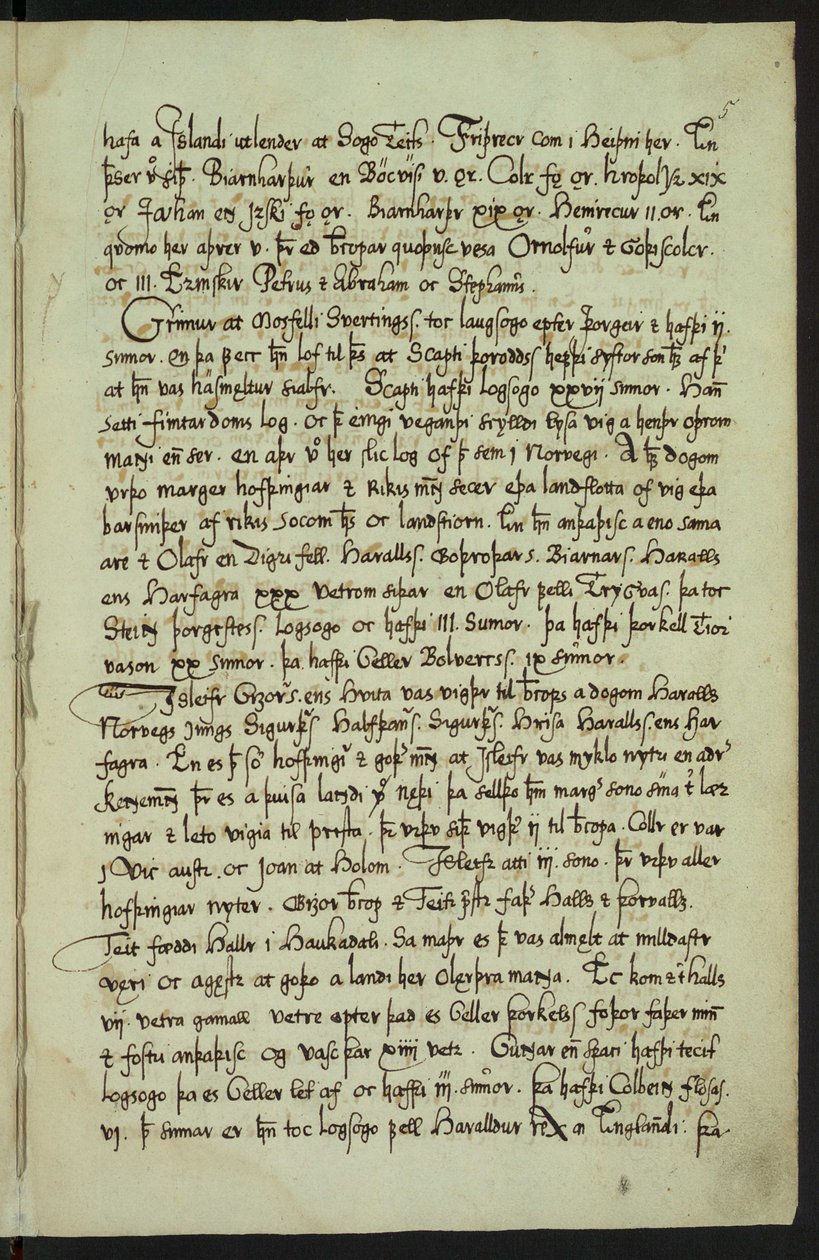 5
hafa a Islandi utlender at Sogo Teits. Friþrecr com i Heiþni her. En
þser. Biarnharþur en Bócvisi v. ǫr. Colr fǫ ǫr. hroþolfr XIX
ǫr Johan en Irski fǫ ǫr. Biarnharþr XIX ǫr. Heinrecur II. or. En
qvomo her aþrer v. þr ed bcopar quoþusc vesa Ornolfur & Goþiscolcr.
oc III. Ermskir Petrus & Abraham oc Stephanus.
Grimur at Mosfelli Svertingss. toc laugsogo epter Þorgeir & hafþi ij.
sumor. en þa þecc hn lof til þs at Scapti Þoroddss hefþi systor son hs af þ
at hn vas hásmęltur sialfr. Scapti hafþi logsogo XXVII sumor. Hann
setti fimtardoms log. oc þ eingi veganþi scylldi lysa vig a henþr oþrom
manni en ser. en aþr v her slic log of þ sem i Norvegi. A hs dogom
urþo marger hofþingiar & rikis menn secer eþa landflotta of vig eþa
barsmiþer af rikis socom hs oc landstiorn. En hn anþaþisc a eno sama
are & Olafr en Digri fell. Haralls. Goþroþars. Biarnars. Haralls
ens Harfagra XXX vetrom siþar en Olafr felli Trygvas. þa toc
Stein Þorgestss. Logsogo oc hafþi III. Sumor. þa hafþi Þorkell Tior
vason XX sumor. þa hafþi Geller Bolvercss. IX sumor.
Isleifr Gizors. ens Hvita vas vigþr til bcops a dogom Haralls
Norvegs Sigurþs Halfþans. Sigurþs. Hrisa Haralls. ens Har
fagra. En es þ so hofþingi & goþ menn at Isleifr vas myklo nytri en adr
kennemenn þr es a þvisa landi nęþi þa selldo hm marg sono sina t lær
ningar & leto vigia til presta. þr urþu siþ vigþ ij til bcopa. Collr er var
i Vic austr. oc Joan at Holom. Isleifr atti iij. sono. þr urþu aller
hofþingiar nyter. Gizor bcop & Teitr pstr faþ Halls & Þorvallz.
Teit fœddi Hallr i Haukadali. Sa maþr es þ vas almęlt at milldastr
vęri oc agęstr at goþo a landi her olęrþra manna. Ec kom & t halls
vij. vetra gamall vetre epter þad es Geller Þorkelss foþor faþer minn
& fostri anþaþisc og vasc þar XIIII vetr. Gunnar enn spaci hafþi tecit
Logsogo þa es Geller let af oc hafþi iij. sumor. þa hafþi Colbein flosas.
VI. þ sumar er hn toc Logsogo fell Haralldur reX a Englandi. þa